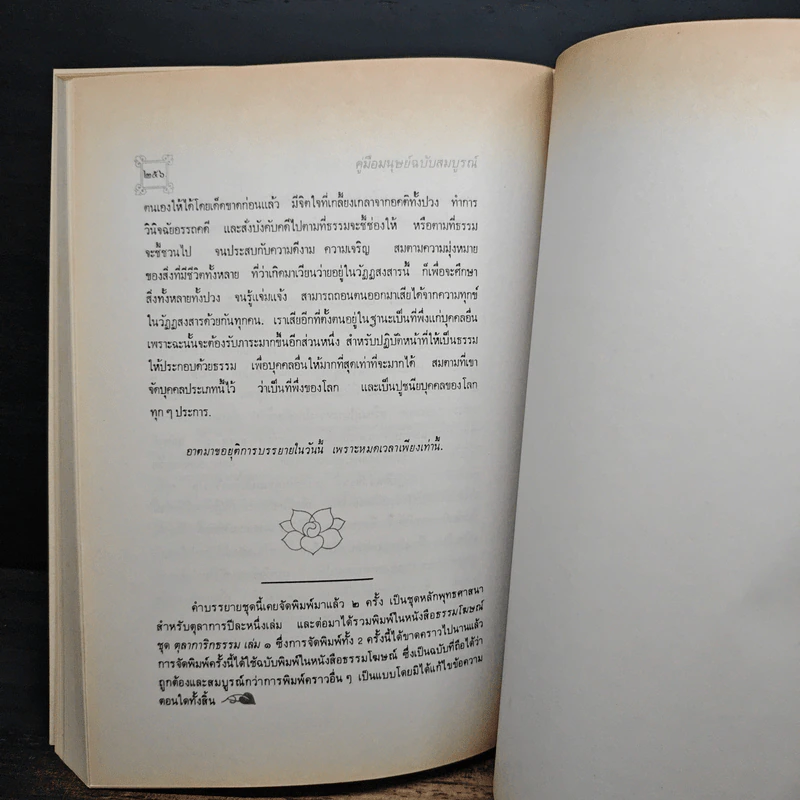 ๒๕๖
คู่มือมนุษย์ฉบับสมบูรณ์
ตนเองให้ได้โดยเด็ดขาดก่อนแล้ว มีจิตใจที่เกลี้ยงเกลาจากอคติทั้งปวง ทำการ
วินิจฉัยอรรถคดี และสั่งบังคับคดีไปตามที่ธรรมจะชี้ช่องให้ หรือตามที่ธรรม
จะชี้ชวนไป จนประสบกับความดีงาม ความเจริญ สมตามความมุ่งหมาย
ของสิ่งที่มีชีวิตทั้งหลาย ที่ว่าเกิดมาเวียนว่ายอยู่ในวัฏฏสงสารนี้ ก็เพื่อจะศึกษา
สิ่งทั้งหลายทั้งปวง จนรู้แจ่มแจ้ง สามารถถอนตนออกมาเสียได้จากความทุกข์
ในวัฏฏสงสารด้วยกันทุกคน. เราเสียอีกที่ตั้งตนอยู่ในฐานะเป็นที่พึ่งแก่บุคคลอื่น
เพราะฉะนั้นจะต้องรับภาระมากขึ้นอีกส่วนหนึ่ง สำหรับปฏิบัติหน้าที่ให้เป็นธรรม
ให้ประกอบด้วยธรรม เพื่อบุคคลอื่นให้มากที่สุดเท่าที่จะมากได้ สมตามที่เขา
จัดบุคคลประเภทนี้ไว้ ว่าเป็นที่พึ่งของโลก และเป็นปูชนียบุคคลของโลก
ทุก ๆ ประการ.
อาตมาขอยุติการบรรยายในวันนี้ เพราะหมดเวลาเพียงเท่านี้.
คำบรรยายชุดนี้เคยจัดพิมพ์มาแล้ว ๒ ครั้ง เป็นชุดหลักพุทธศาสนา
สำหรับตุลาการปีละหนึ่งเล่ม และต่อมาได้รวมพิมพ์ในหนังสือธรรมโฆษณ์
ชุด ตุลาการิกธรรม เล่ม ๑ ซึ่งการจัดพิมพ์ทั้ง 2 ครั้งนี้ได้ขาดคราวไปนานแล้ว
การจัดพิมพ์ครั้งนี้ได้ใช้ฉบับพิมพ์ในหนังสือธรรมโฆษณ์ ซึ่งเป็นฉบับที่ถือได้ว่า
ถูกต้องและสมบูรณ์กว่าการพิมพ์คราวอื่น ๆ เป็นแบบโดยมิได้แก้ไขข้อความ
ตอนใดทั้งสิ้น